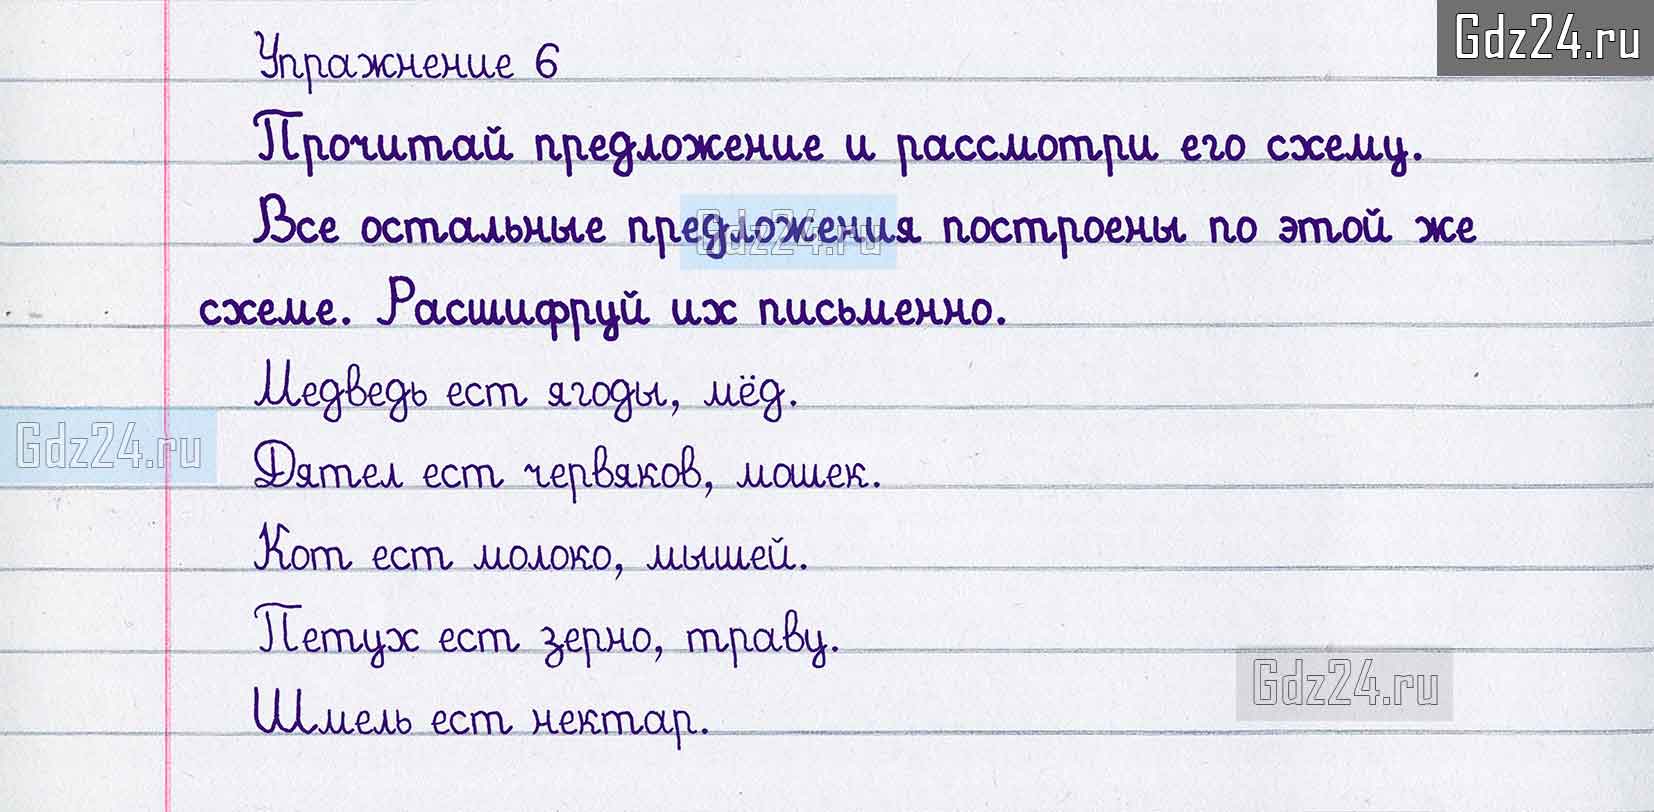 Gdz24.ru
Упражнение 6
Прочитай предложение и рассмотри его схему.
Все остальные предложения построены по этой же
схеме. Расшифруй их письменно.
Медведь ест ягоды, мёд.
Gdz24.ru
Дятел ест червяков, мошек.
Кот ест молоко, мышей.
Петух ест зерно, траву.
Gdz24.ru
Шмель ест нектар.
Gdz24.ru